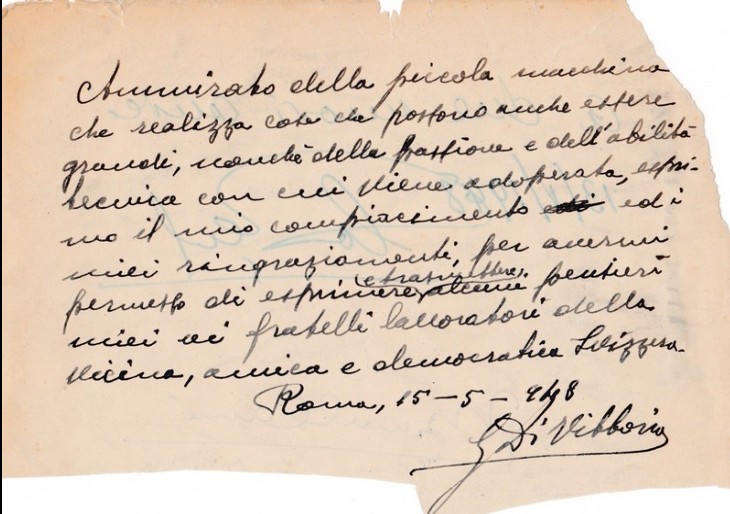 Ammirato della piccola macchina
che realizza cose che possono anche essere
grandi, nonchè della passione e dell'abilità
tecnica con cui viene adoperata, espri-
mo il mio compiacimento ed i
miei ringraziamenti, per avermi
permesso di esprimere (e trasmettere) alcuni pensieri
miei ai fratelli lavoratori della
vicina, amica e democratica Svizzera.
Roma, 15 - 5 - 948
G Di Vittorio